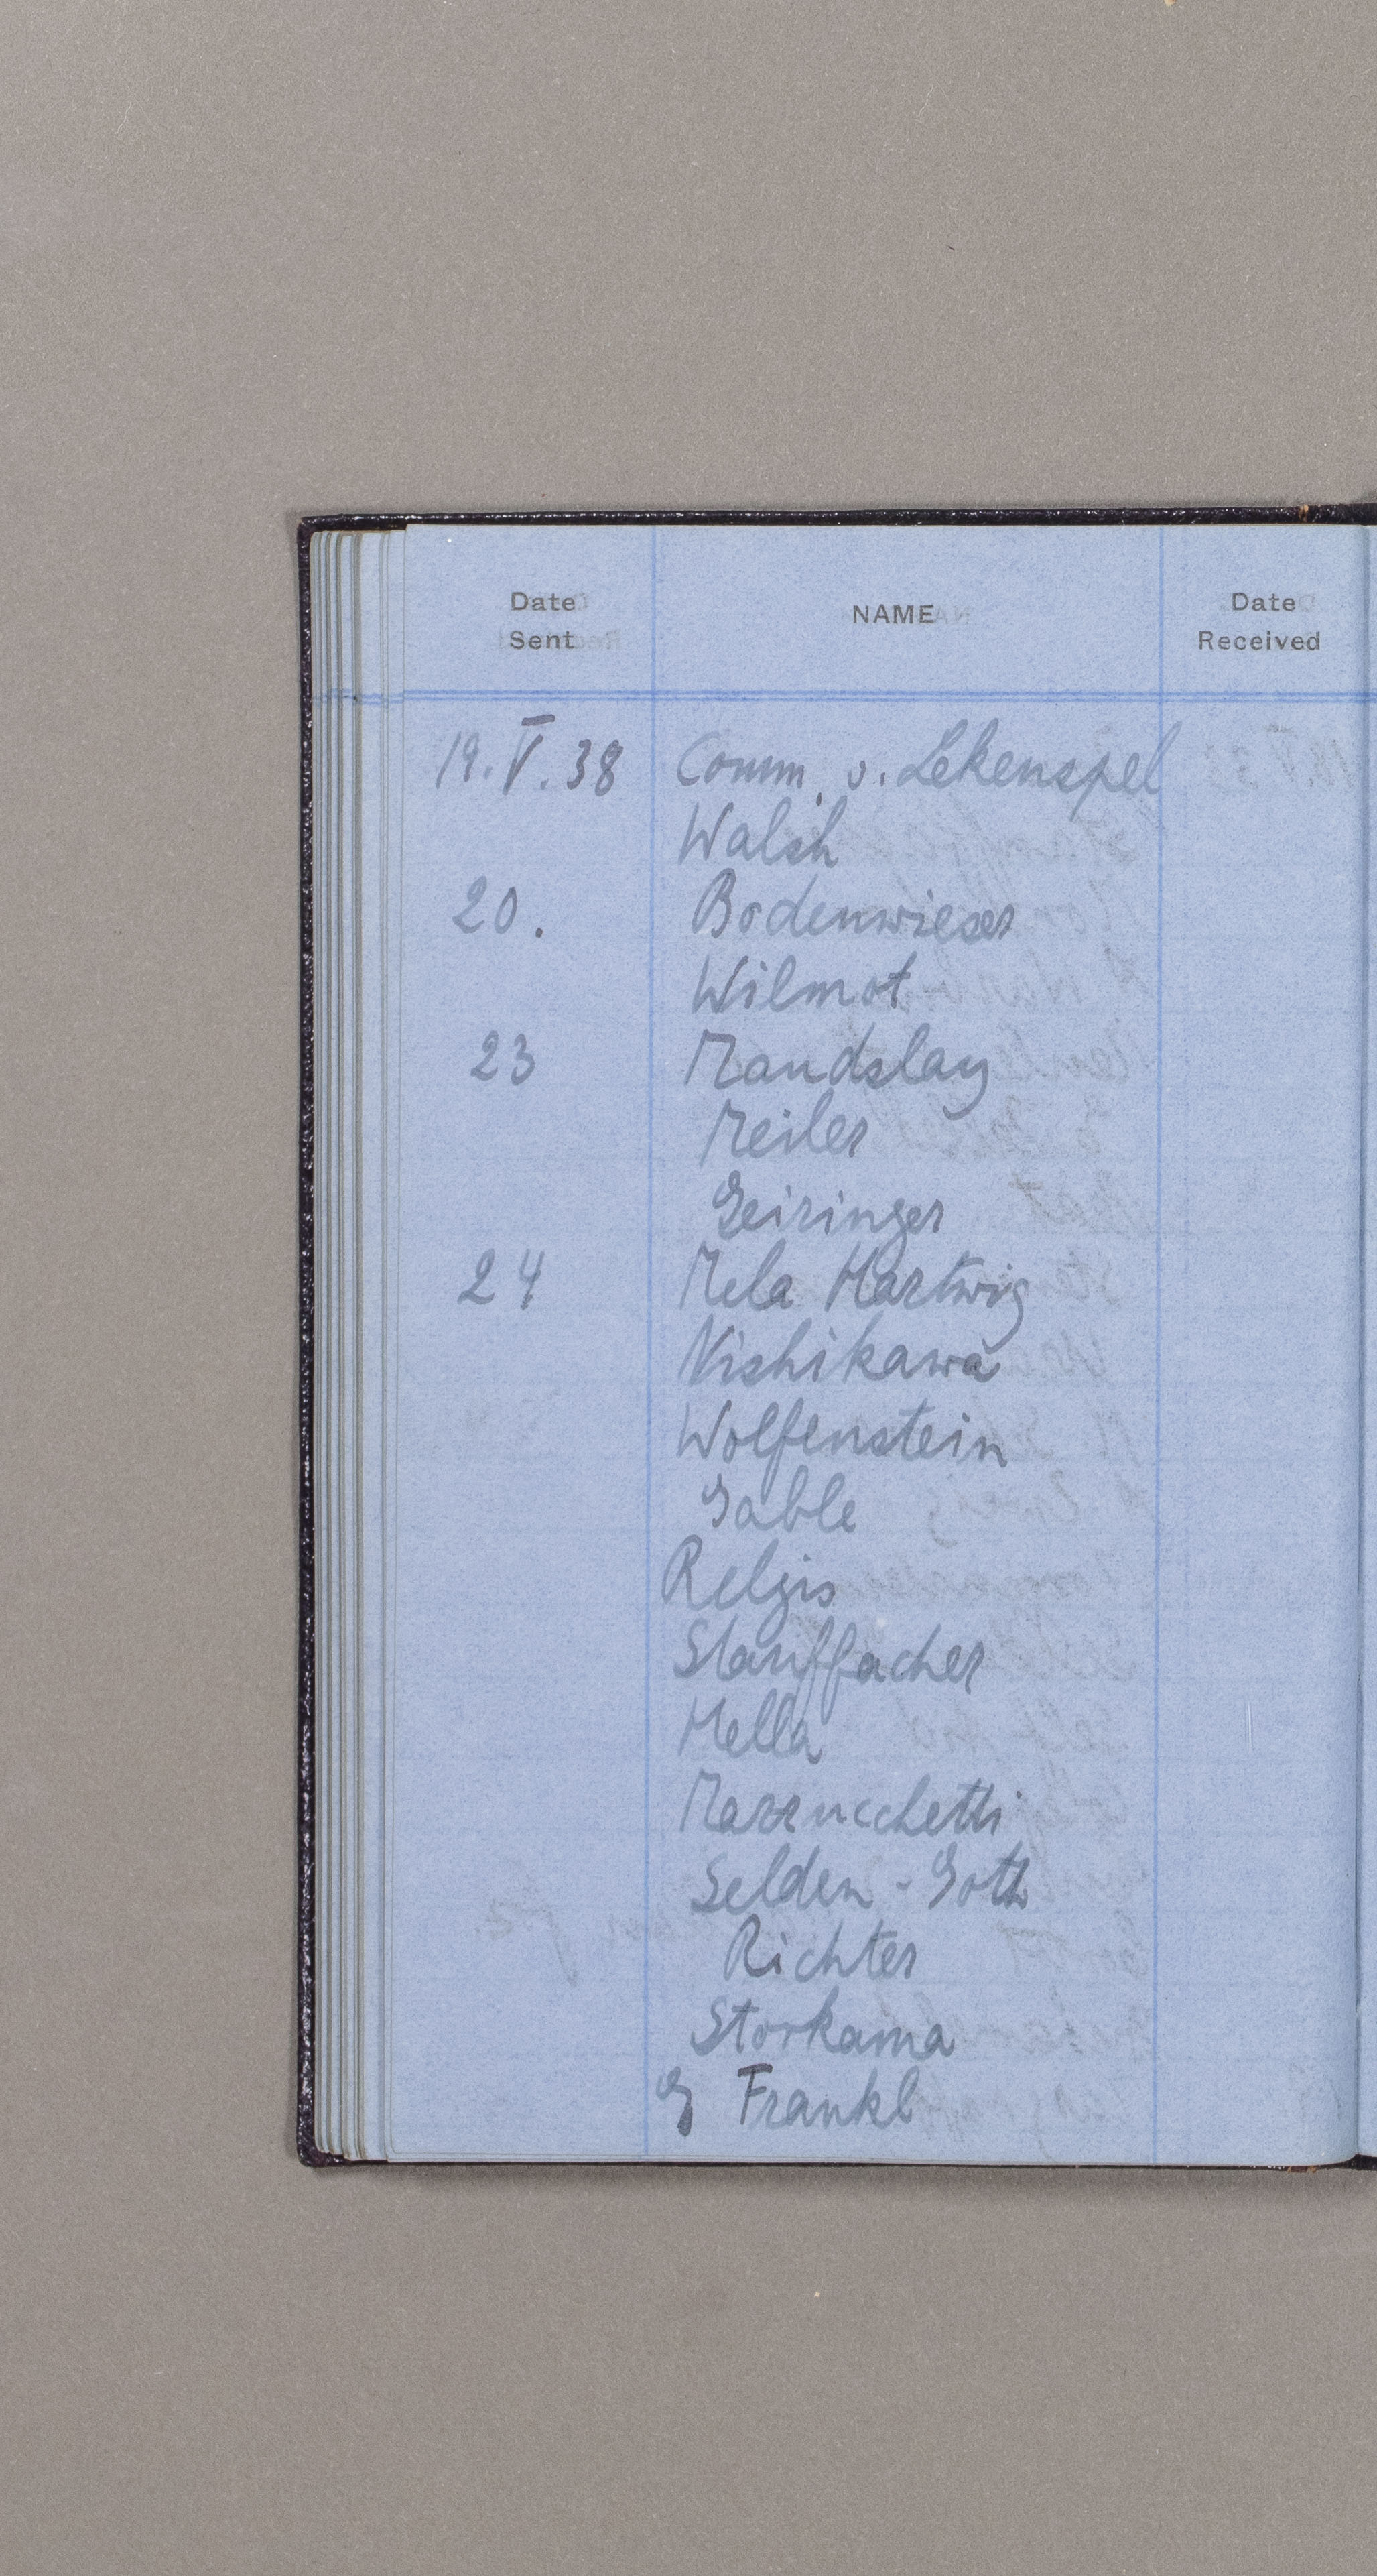 Date Sent NAME Date Received
19.V.38 Comm. v. Lekenspel
Walsh
20. Bodenwieser
Wilmot
23 Maudslay
Meiler
Geiringer
24 Mela Hartwig
Nishikawa
Wolfenstein
Gable
Relgis
Stauffacher
Mella
Mazzucchetti
Selden-Goth
Richter
Storkama
G Frankl